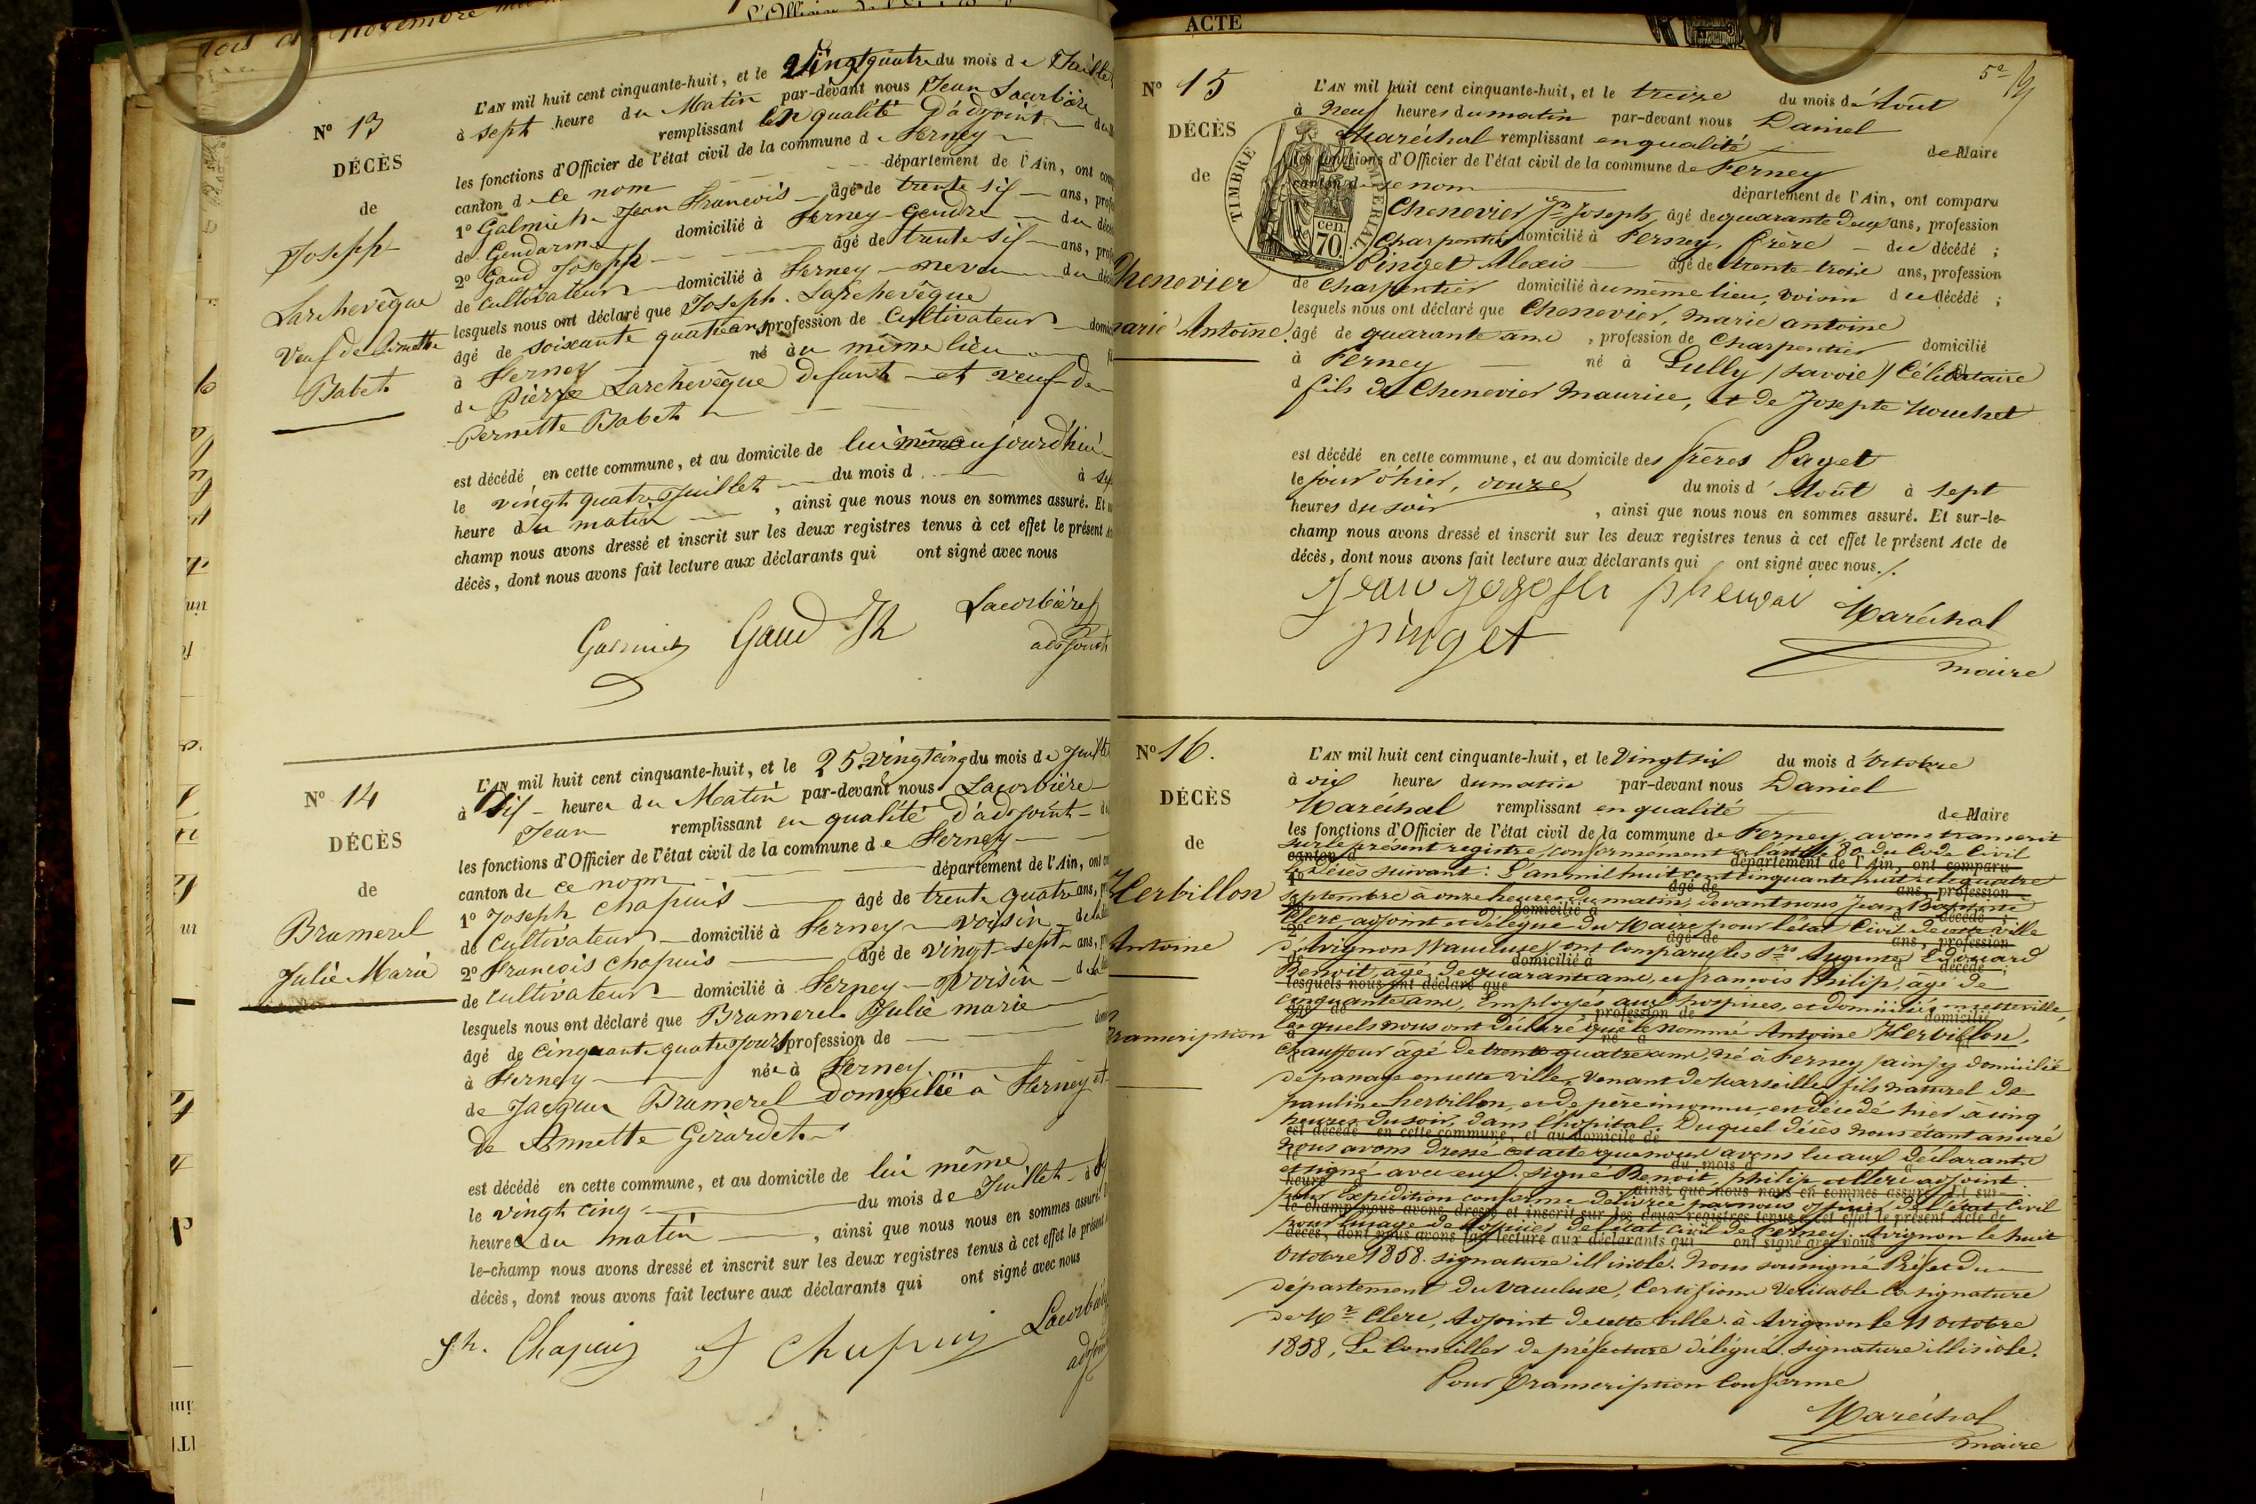 N° 13
DÉCÈS
de
Joseph
Larchevêque
Veuf de Pernette
Babet
L'AN mil huit cent cinquante-huit, et le Vingtquatre du mois de Juillet
à sept heure du Matin par-devant nous Jean Lacorbière
remplissant en qualité d'adjoint
les fonctions d'Officier de l'état civil de la commune de Ferney
canton de ce nom département de l'Ain, ont
1° Galmich Jean François âgé de trente six ans,
de Gendarme domicilié à Ferney Gendre du
2° Gaud Joseph âgé de trente six ans,
de cultivateur domicilié à Ferney neveu du
lesquels nous ont déclaré que Joseph Larchevêque
âgé de soixante quatre ans profession de Cultivateur
à Ferney né au même lieu
de Pierre Larchevêque defunt et veuf de
Pernette Babet
est décédé en cette commune, et au domicile de lui même aujourd'hui
le vingt quatre Juillet du mois d à
heure du matin , ainsi que nous nous en sommes assuré. Et
champ nous avons dressé et inscrit sur les deux registres tenus à cet effet le présent
décès, dont nous avons fait lecture aux déclarants qui ont signé avec nous
Gaud Jh Lacorbière
adjoint
N° 14
DÉCÈS
de
Bramerel
Julie Marie
L'AN mil huit cent cinquante-huit, et le 25 vingt cinq du mois de Juillet
à Dix heures du Matin par-devant nous Lacorbière
Jean remplissant en qualité d'adjoint
les fonctions d'Officier de l'état civil de la commune de Ferney
canton de ce nom département de l'Ain, ont
1° Joseph Chapuis âgé de trente quatre ans,
de Cultivateur domicilié à Ferney voisin de la
2° François Chapuis âgé de vingt-sept ans,
de cultivateur domicilié à Ferney voisin
lesquels nous ont déclaré que Bramerel Julie marie
âgé de Cinquante quatre jours profession de
à Ferney née à Ferney
de Jacques Bramerel domicilié à Ferney et
de Annette Girardet
est décédé en cette commune, et au domicile de lui même
le vingt cinq du mois de Juillet à
heures du matin , ainsi que nous nous en sommes assuré.
le-champ nous avons dressé et inscrit sur les deux registres tenus à cet effet le présent
décès, dont nous avons fait lecture aux déclarants qui ont signé avec nous
Jh. Chapuis F Chapuis
ACTE
N° 15
DÉCÈS
de
Chenevier
marie Antoine
5e
TIMBRE IMPÉRIAL
70 cen.
L'AN mil huit cent cinquante-huit, et le treize du mois d'Août
à Neuf heures du matin par-devant nous Daniel
Maréchal remplissant en qualité de Maire
les fonctions d'Officier de l'état civil de la commune de Ferney
canton de ce nom département de l'Ain, ont comparu
Chenevier Jn Joseph, âgé de quarante deux ans, profession
Charpentier domicilié à Ferney, frère du décédé ;
Pinget Alexis âgé de trente trois ans, profession
de Charpentier domicilié au même lieu, voisin du décédé ;
lesquels nous ont déclaré que Chenevier, marie antoine
âgé de quarante ans , profession de Charpentier domicilié
à Ferney né à Lully (Savoie) Célibataire
fils de Chenevier Maurice, et de Josepte Mouchet
est décédé en cette commune, et au domicile des frères Paget
le jour d'hier, douze du mois d'Août à sept
heures du soir , ainsi que nous nous en sommes assuré. Et sur-le-
champ nous avons dressé et inscrit sur les deux registres tenus à cet effet le présent Acte de
décès, dont nous avons fait lecture aux déclarants qui ont signé avec nous./.
Maréchal
pinget
maire
N° 16.
DÉCÈS
de
Herbillon
Antoine
Transcription
L'AN mil huit cent cinquante-huit, et le Vingt six du mois d'Octobre
à dix heures du matin par-devant nous Daniel
Maréchal remplissant en qualité de Maire
les fonctions d'Officier de l'état civil de la commune de Ferney, avons transcrit
sur le présent registre, conformément à l'article 80 du Code Civil
canton d département de l'Ain, ont comparu
le Décès suivant : L'an mil huit cent cinquante huit et le quatre
1° âgé de ans, profession
septembre à onze heures du matin, devant nous Jean Baptiste
domicilié à d décédé ;
Clerc, adjoint et délégué du Maire pour l'état Civil de cette ville
2° âgé de ans, profession
d'Avignon (Vaucluse) ont comparu les Srs Auguste Edouard
de domicilié à d décédé ;
Benoit, âgé de quarante ans, et françois Philip, âgé de
lesquels nous ont déclaré que
cinquante ans, Employés aux hospices, et domiciliés en cette ville,
âgé de , profession de domicilié
lesquels nous ont déclaré que le nommé Antoine Herbillon,
à né à
Chauffeur âgé de trente quatre ans, né à Ferney (ain) y domicilié
de passage en cette ville, venant de Marseille, fils naturel de
pauline herbillon, et de père inconnu, est décédé hier à cinq
heures du soir, dans l'hôpital. Duquel décès nous étant assuré
est décédé en cette commune, et au domicile de
nous avons dressé cet acte que nous avons lu aux déclarants
le du mois d à
et signé avec eux. signé Benoit, philip et Clerc adjoint.
heure d , ainsi que nous nous en sommes assuré. Et sur-
pour Expédition conforme délivrée par nous officier de l'état Civil
le champ nous avons dressé et inscrit sur les deux registres tenus à cet effet le présent Acte de
pour l'usage de l'officier de l'état civil de Ferney. Avignon le huit
décès, dont nous avons fait lecture aux déclarants qui ont signé avec nous
Octobre 1858. signature illisible. Nous soussigné Préfet du
département du Vaucluse, Certifions Véritable la signature
de Mr Clerc, Adjoint de cette ville. à Avignon le 11 Octobre
1858, Le Conseiller de préfecture délégué. signature illisible.
Pour Transcription Conforme
Maréchal
maire